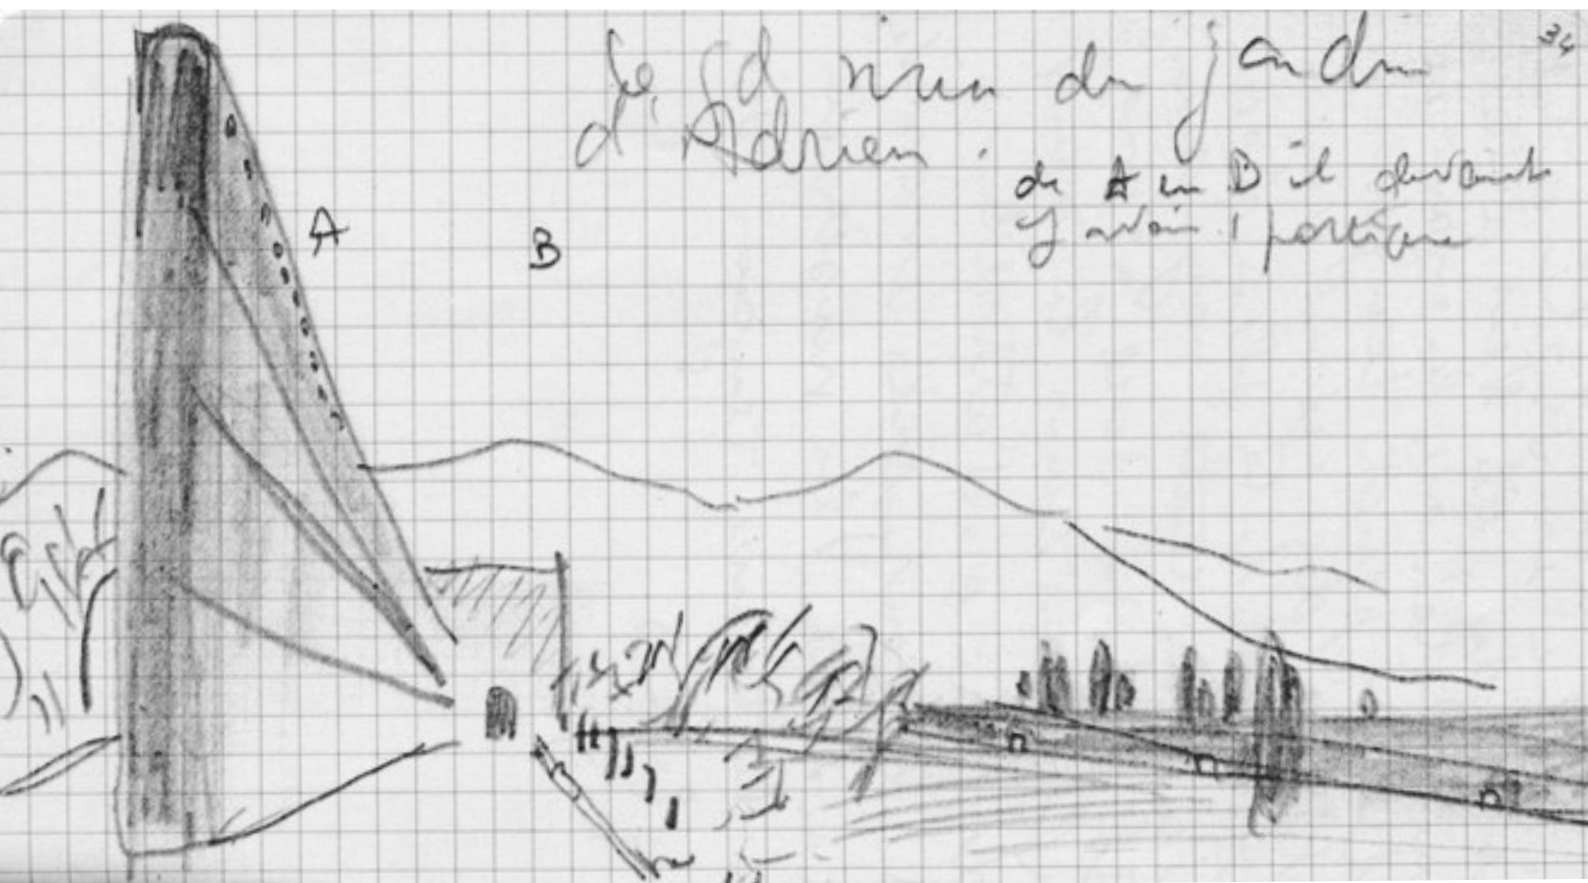 34
Le gd mur du jardin
d'Adrien.
de A en B il devait
y avoir 1 portique
A
B